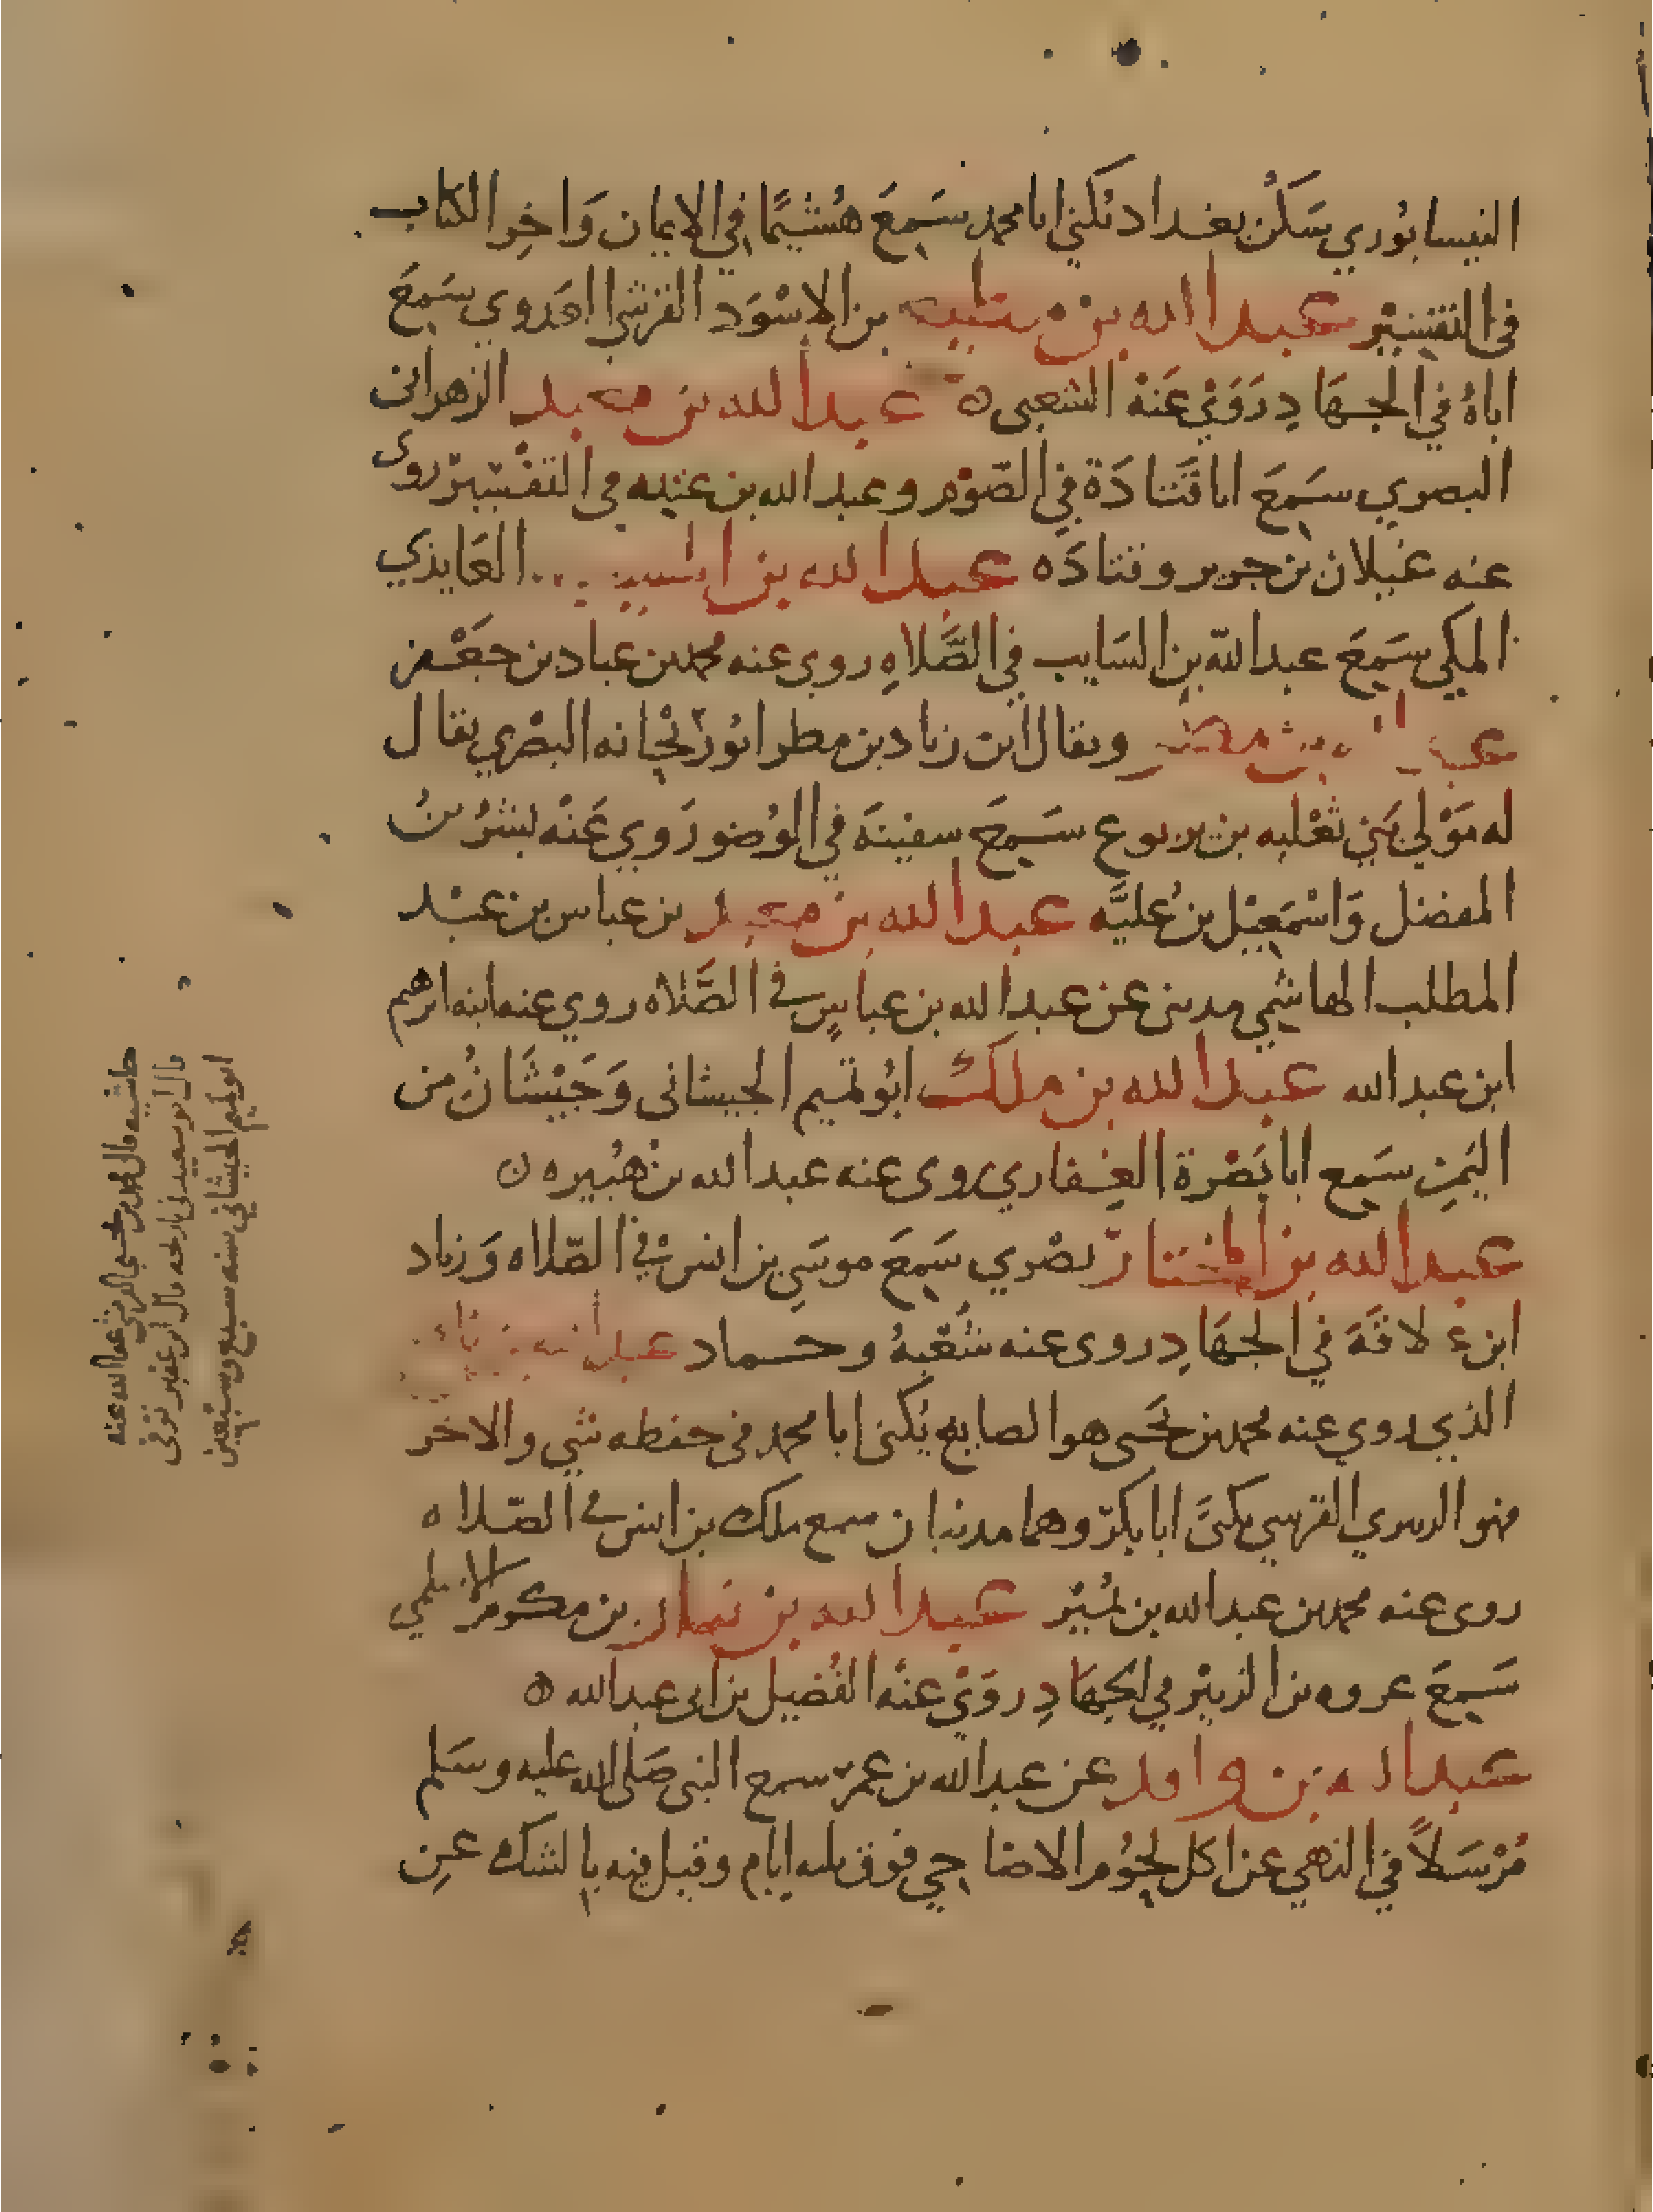 النيسابُوري سَكَن بغداد يُكني ابا محمد سَمِعَ هُشَيمًا في الايمان وَاخِر الكتاب
في التفسِيْر عبد الله بن مطيع بن الاسْوَد القرشي العَدوي سَمِعَ
اباهُ في الجهَادِ رَوَيْ عَنْهُ الشعبى ه عبد الله بن معبد الزهرانى
البصري سَمِعَ ابا قَتَادَة فِي الصَّوْم وعبد الله بن عتبه في التفْسِيْر روى
عنه غَيلان بن جرير وقتادَه عبد الله بن المسيب العَايذي
المكي سَمِعَ عبد اللّه بن السَايب في الصَّلاهِ روى عنه محمد بن عباد بن جعْفر
عبد الله بن مطر ويقال ابن زياد بن مطر ابُو رَيْحانه البصْري يقال
له مَوْلي بَني ثعْلبه بن يربوع سَمِعَ سفينَة في الوُضو رَوي عَنْه بشرُ بنُ
المفضل وَاسْمَعِيْل بن عُليَّه عبد الله بن معبد بن عباس بن عبْد
المطلب الهاشمي مدينى عن عبد الله بن عباسٍ في الصَّلاه روي عنه ابنه ابرهيم
ابن عبد الله عبد الله بن ملك ابُو تميم الجيشانى وَجَيْشَانُ من
اليَمنِ سَمِع ابا بَصْرة الغِفاري روى عنه عبد الله بن هُبيره ه
عبد الله بن المُختار بصْري سَمِعَ موسَى بن انس في الصّلاه وَزياد
ابن علاقَة في الجهَادِ روى عنه شُعْبهُ وحماد عبد الله بن نافع
الذي روي عنه محمد بن يَحيى هو الصايغ يُكنى ابا محمد في حفظه شي والاخر
فهو الزبيري القرشي يكنىَ ابا بكر وهما مدنيان سمع ملك بن انس في الصّلاه
روى عنه محمد بن عبد الله بن نُمَيْر عبد الله بن نيار بن مكرم الاسلمي
سَمِعَ عروه بن الزبَيْر في الجهَادِ روَيْ عنْه الفُضيل بن ابى عبد الله ه
عبد الله بن واقد عن عبد الله بن عمر سمع النبى صَلى الله عليه وسَلم
مُرْسَلاً في النهي عن اكل لحُوم الاضاحِي فوق ثلثه ايام وقيل فيه بالشك عن
حاشيه قال محمد بن يحيى القرشي عفا الله عنه
قال ابو سعيد في تاريخه قال ابن عفير توفى
ابو تميم الجيشاني سنه سبع وسبْعين